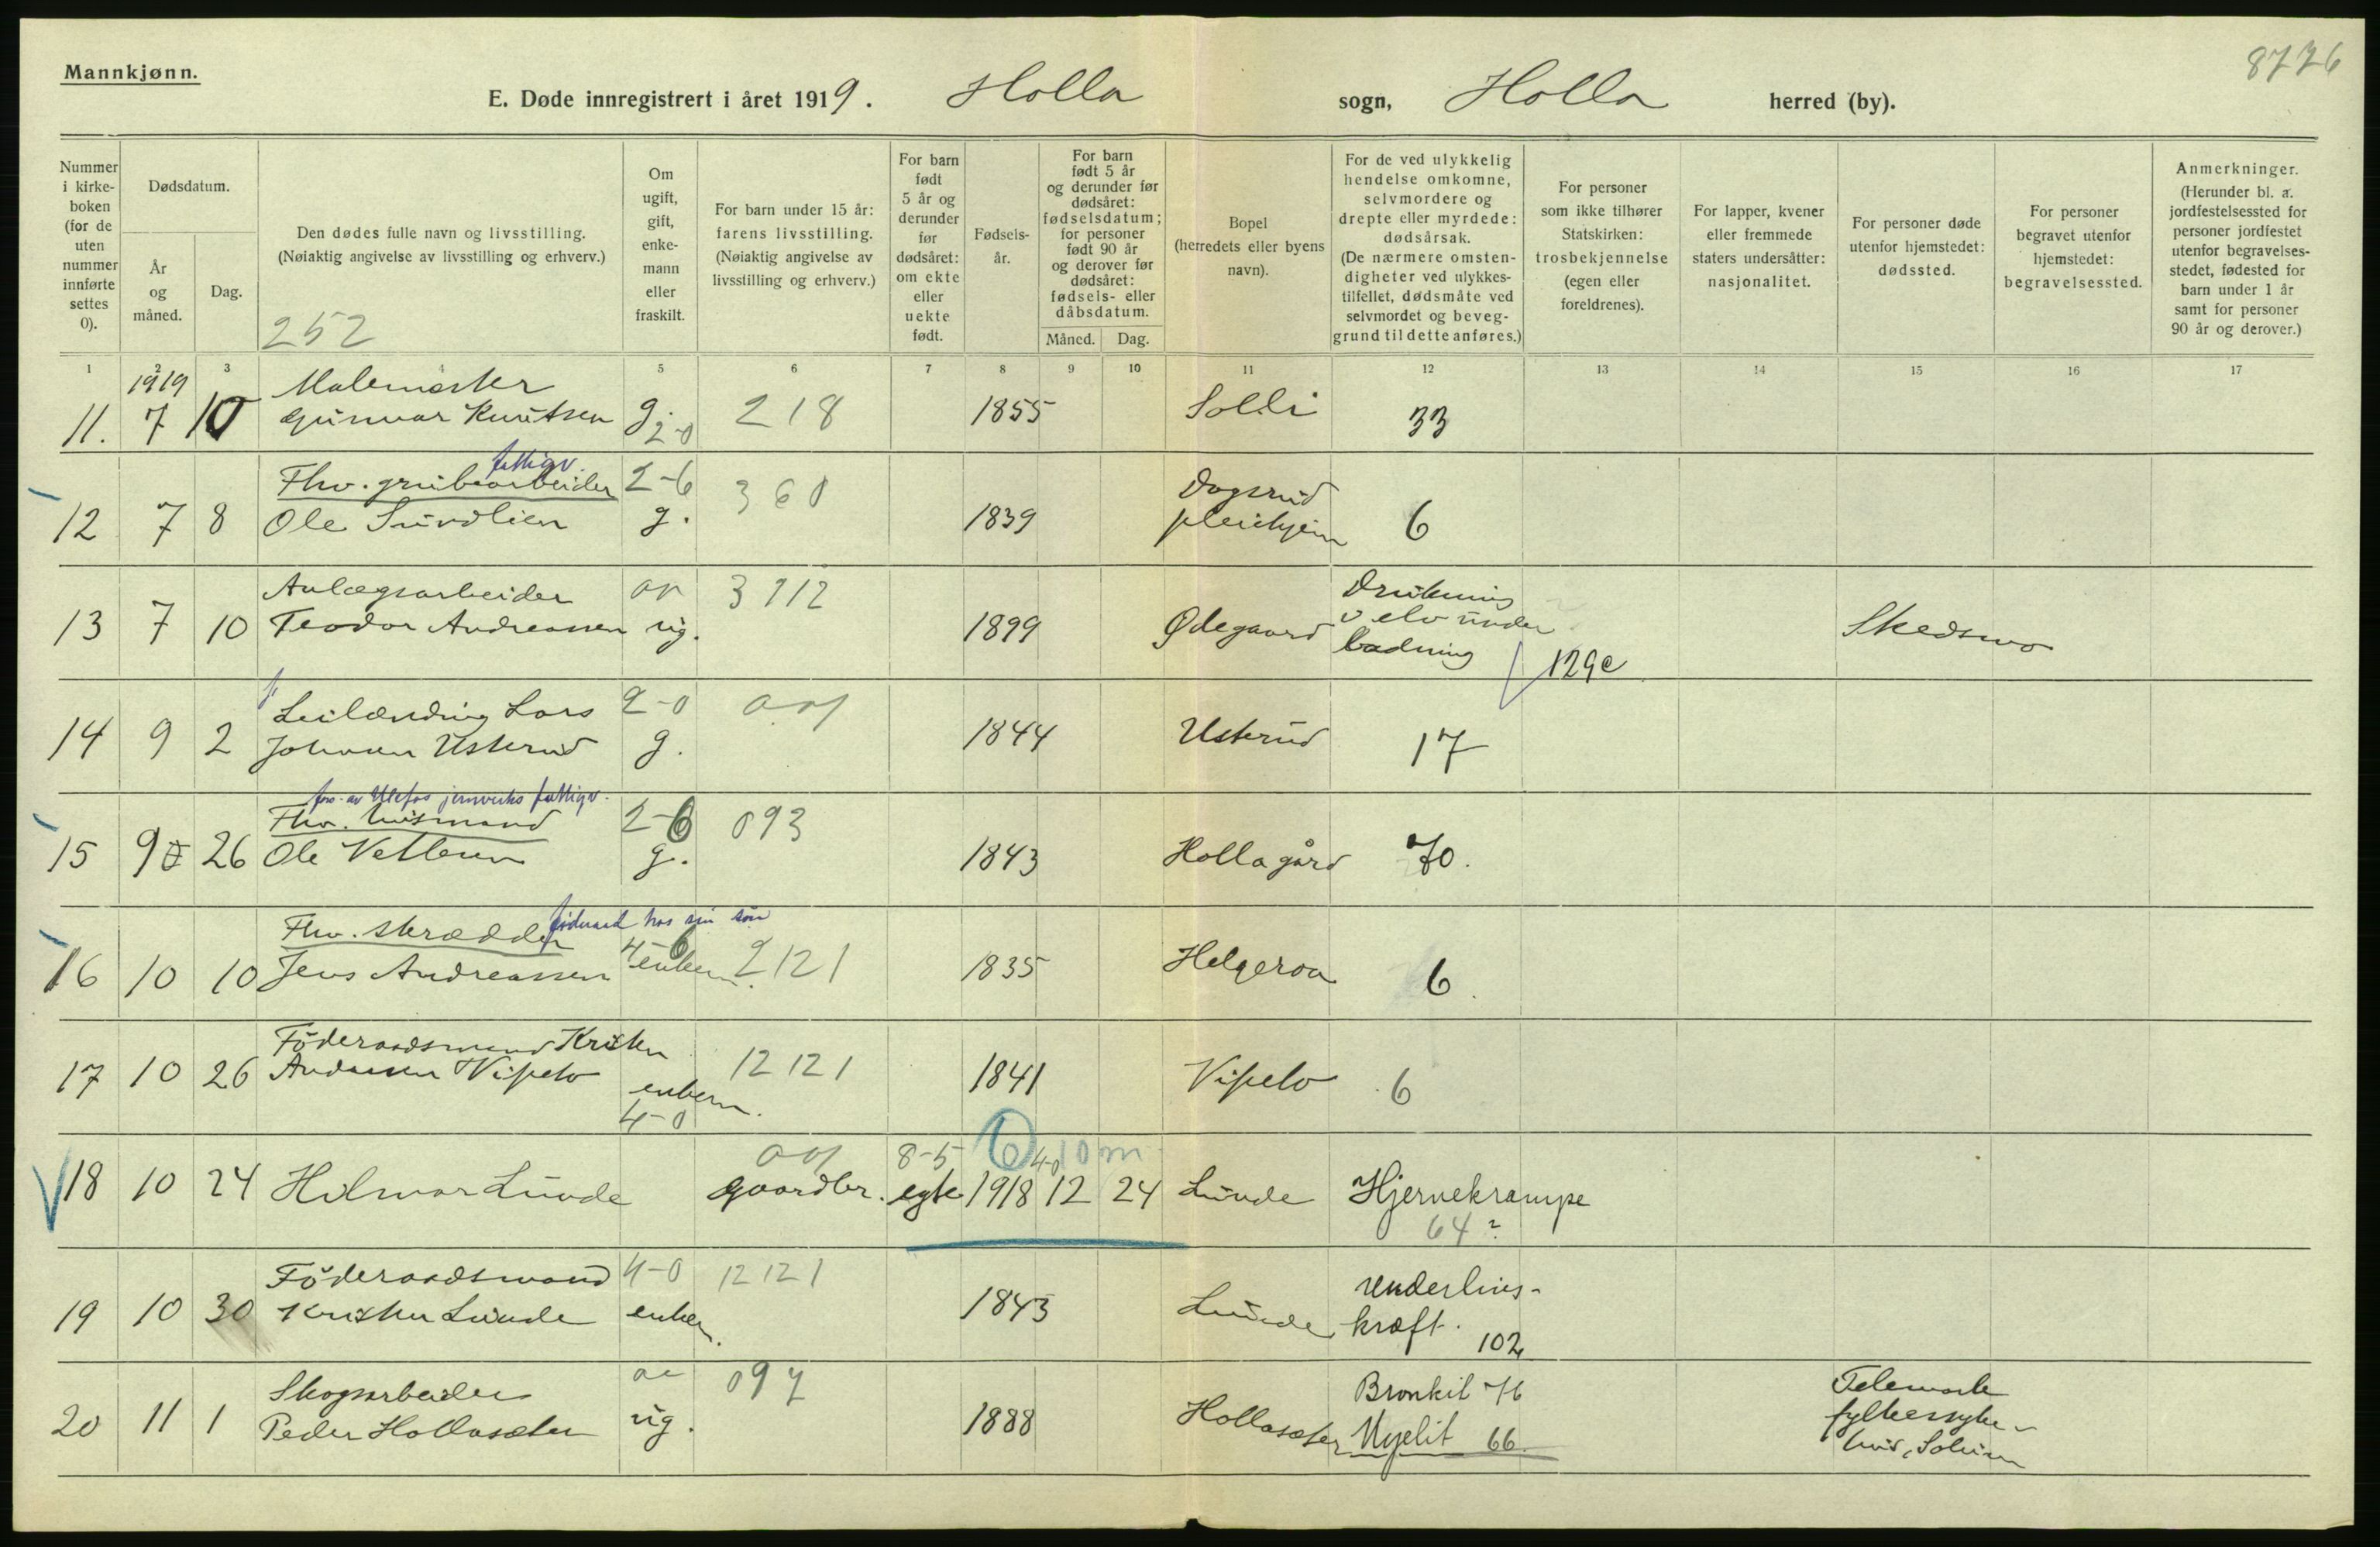 8776
Mannkjønn.
E. Døde innregistrert i året 1919. Holla sogn, Holla herred (by).
Nummer i kirke-boken (for de uten nummer innførte settes 0).
Dødsdatum.
År og måned.
Dag.
Den dødes fulle navn og livsstilling.
(Nøiaktig angivelse av livsstilling og erhverv.)
252
Om ugift, gift, enke-mann eller fraskilt.
For barn under 15 år: farens livsstilling.
(Nøiaktig angivelse av livsstilling og erhverv.)
For barn født 5 år og derunder før dødsåret: om ekte eller uekte født.
Fødsels-år.
For barn født 5 år og derunder før dødsåret: fødselsdatum; for personer født 90 år og derover før dødsåret: fødsels- eller dåbsdatum.
Måned. Dag.
Bopel (herredets eller byens navn).
For de ved ulykkelig hendelse omkomne, selvmordere og drepte eller myrdede: dødsårsak.
(De nærmere omsten-digheter ved ulykkes-tilfellet, dødsmåte ved selvmordet og beveg-grund til dette anføres.)
For personer som ikke tilhører Statskirken: trosbekjennelse (egen eller foreldrenes).
For lapper, kvener eller fremmede staters undersåtter: nasjonalitet.
For personer døde utenfor hjemstedet: dødssted.
For personer begravet utenfor hjemstedet: begravelsessted.
Anmerkninger.
(Herunder bl. a. jordfestelsessted for personer jordfestet utenfor begravelses-stedet, fødested for barn under 1 år samt for personer 90 år og derover.)
1 2 3 4 5 6 7 8 9 10 11 12 13 14 15 16 17
1919 Malemester
11. 7 10 Gunnar Knutsen g. 2-0 218 1855 Solli 33
fattigv.
Fhv. grubearbeider 2-6 360 Dagsrud
12 7 8 Ole Sundlien g. 1839 pleiehjem 6
Anlægsarbeider 3712 Drukning
13 7 10 Teodor Andreassen ug. 1899 Ødegaard v elv under Skedsmo
badning 129c
Leilænding Lars 2-0
14 9 2 Johnsen Usterud g. 1844 Usterud 17
fors. av Ulefos jernverks fattigv.
Fhv. husmand 2-6 093
15 9 26 Ole Vetleum g. 1843 Holla gård 70.
føderaad hos sin søn
Fhv. skrædder 4-6
16 10 10 Jens Andreassen enkem. 2121 1835 Helgeroa 6.
Føderaadsmand Kristen
17 10 26 Andersen Vipeto enkem. 12121 1841 Vipeto 6
4-0
8-5 6 4-0 10 m
18 10 24 Hilmar Lunde gaardbr. egte 1918 12 24 Lunde Hjernekrampe
64?
Føderaadsmand 4-0 12121 underlivs-
19 10 30 Kristen Lunde enkem. 1843 Lunde kræft. 102
Skogsarbeider 097 Bronkit 76 Telemark
20 11 1 Peder Hollasæter ug. 1888 Hollasæter Myelit 66. fylkessyke-
hus, Solum